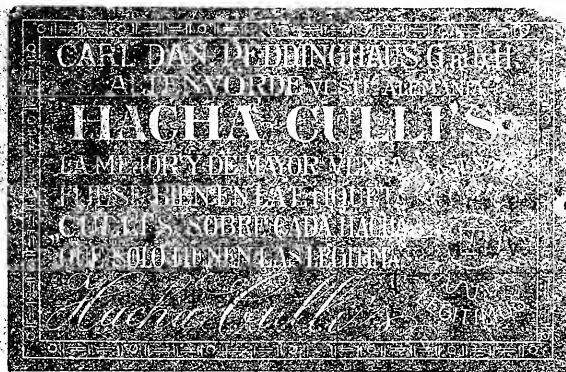 CARL DAN. PEDDINGHAUS G.m.b.H.
ALTENVORDE
HACHA CULLI'S
LA MEJOR Y DE MAYOR VENTA
FIJESE BIEN EN LA ETIQUETA
CULLI'S SOBRE CADA HACHA
QUE SOLO TIENEN LAS LEGITIMAS
Hacha Culli's